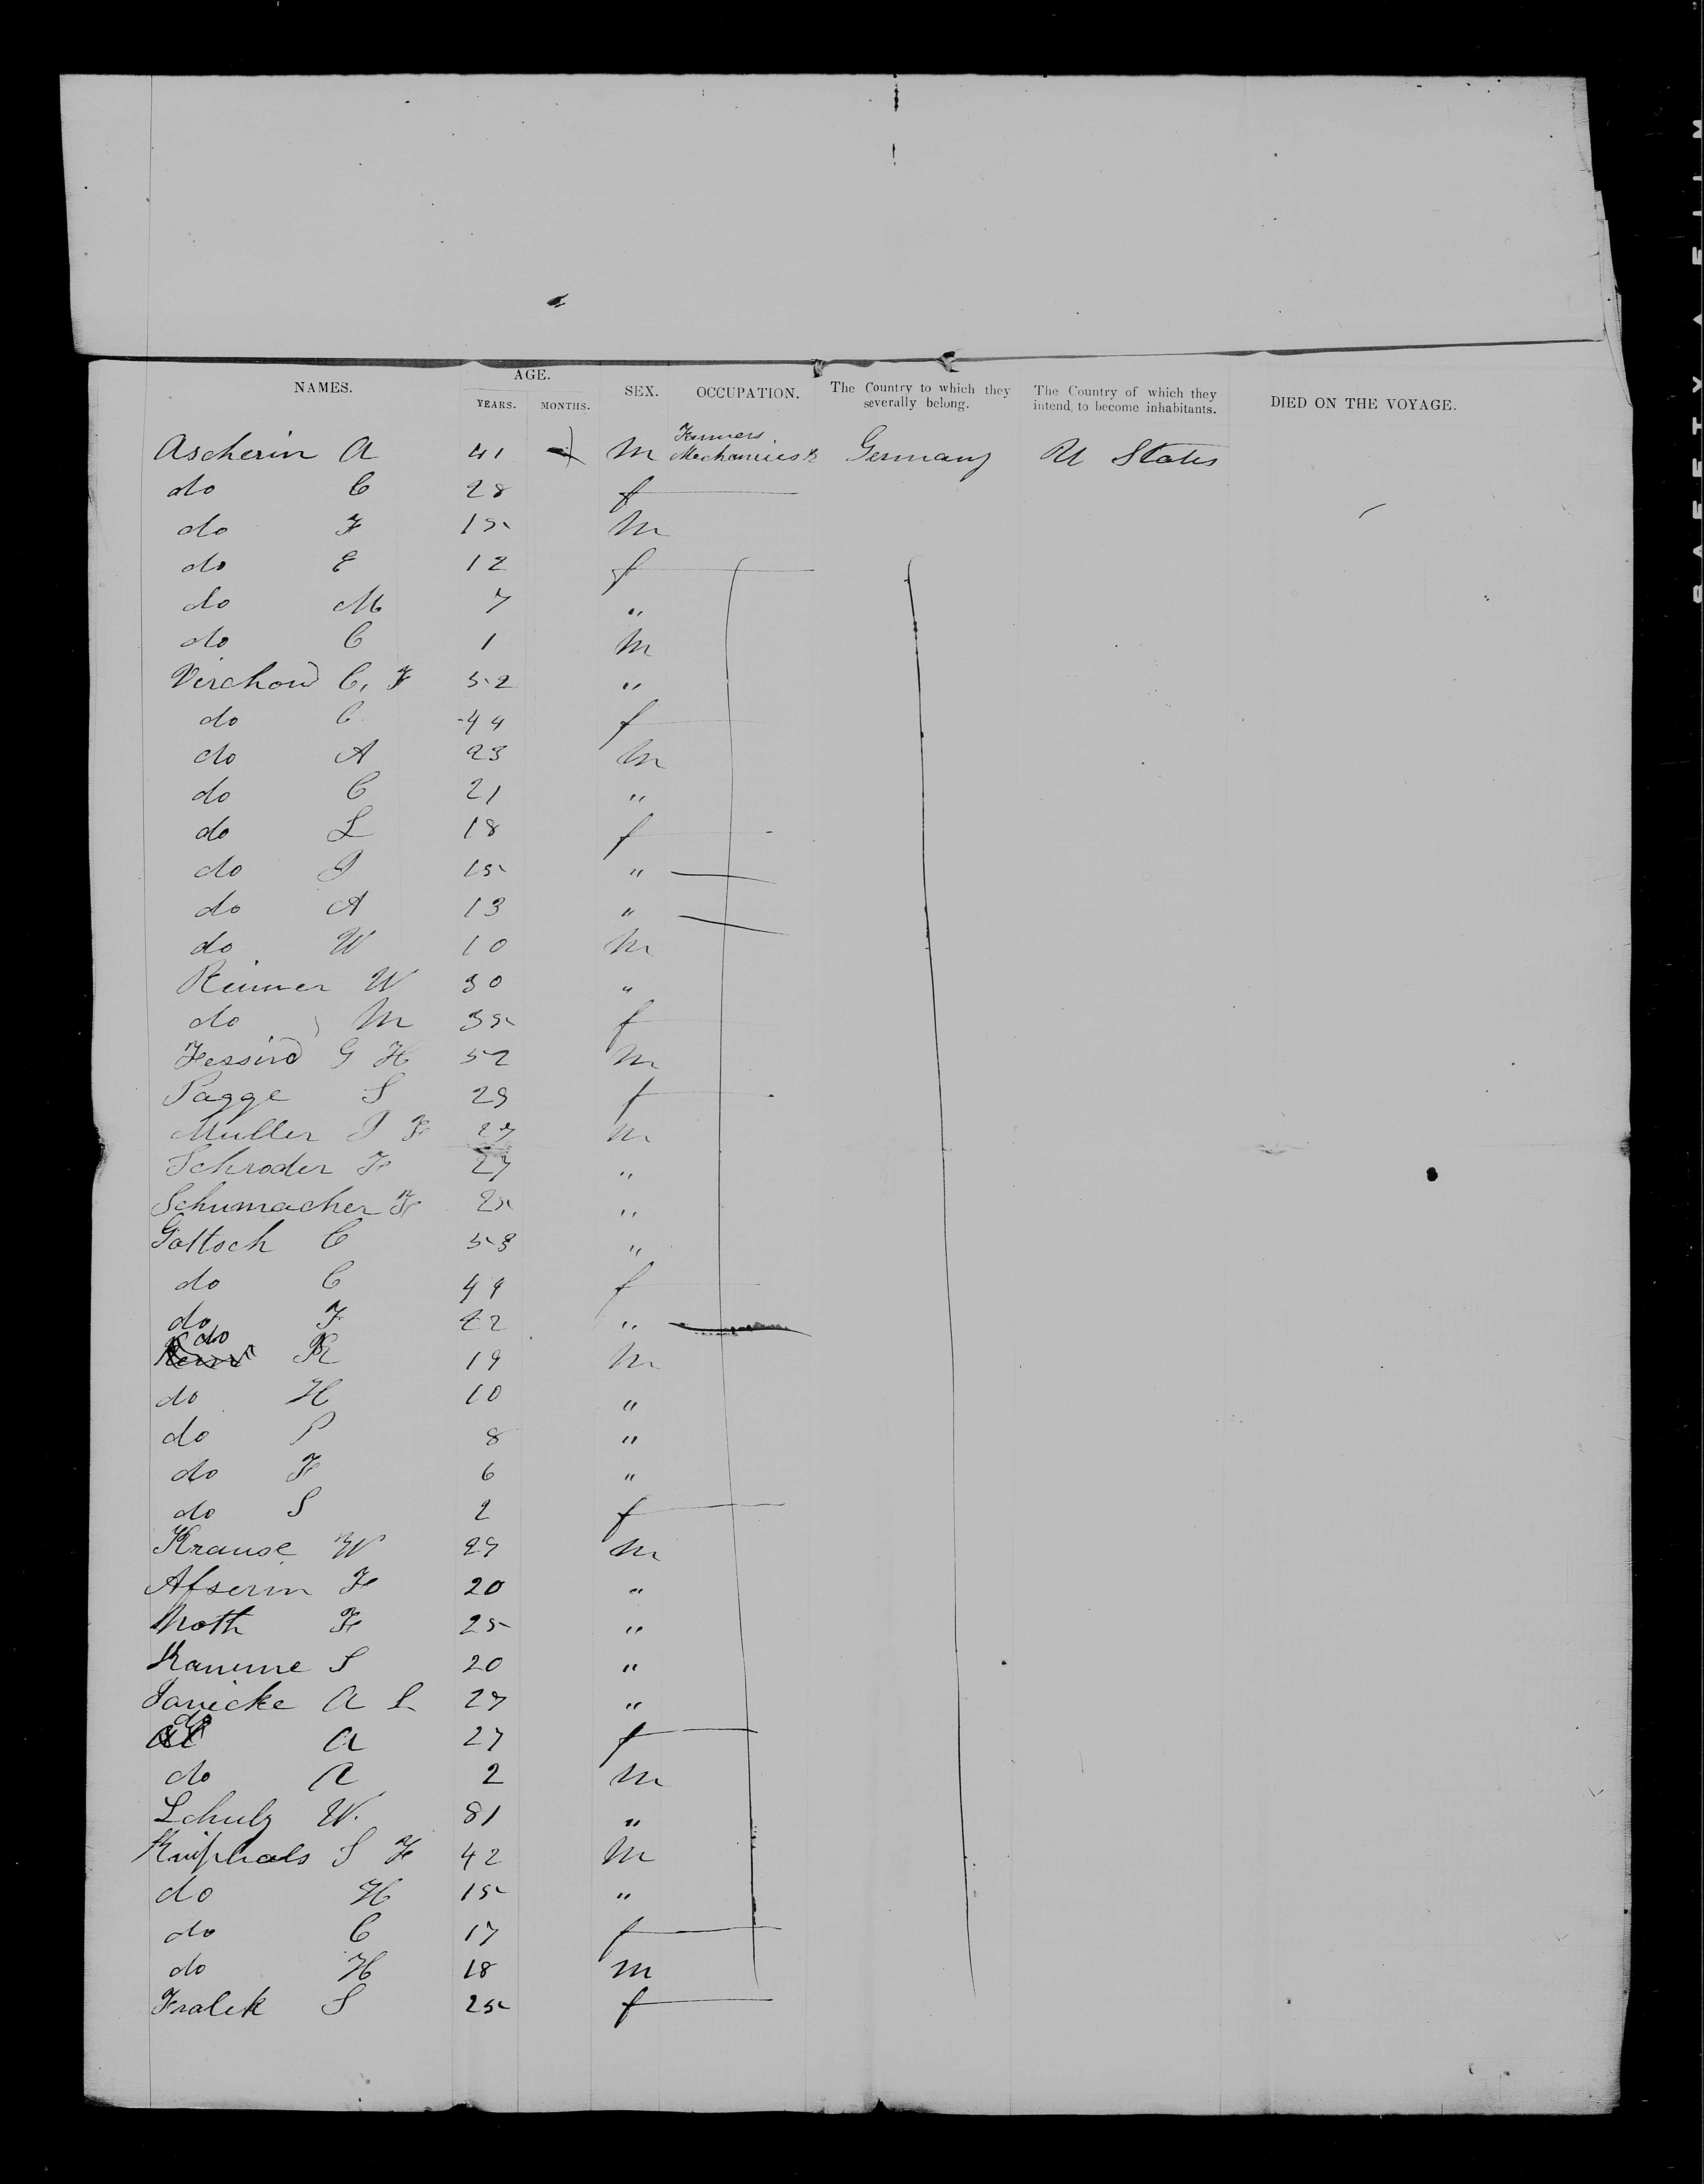 NAMES. AGE. YEARS. MONTHS. SEX. OCCUPATION. The Country to which they severally belong. The Country of which they intend to become inhabitants. DIED ON THE VOYAGE.
Ascherin A 41 M Farmers Mechanics Germany U States
do C 28 f
do F 15 M
do E 12 f
do M 7 "
do C 1 M
Virchow C. F 52 "
do C 44 f
do A 23 M
do C 21 "
do L 18 f
do J 15 "
do A 13 "
do W 10 M
Reimer W 30 "
do M 35 f
Fessin G H 52 M
Pagge S 29 f
Muller J F 27 M
Schroder F 27 "
Schumacher F 25 "
Gottsch C 53 "
do C 44 f
do F 22 "
do R 19 M
do H 10 "
do P 8 "
do F 6 "
do S 2 f
Krause W 27 M
Afserin F 20 "
Noth F 25 "
Kamme S 20 "
Janicke A L 27 "
do A 27 f
do A 2 M
Schulz W. 31 "
Kniphals S F 42 M
do H 15 "
do C 17 f
do H 18 M
Fralek S 25 f
SAFETY FILM